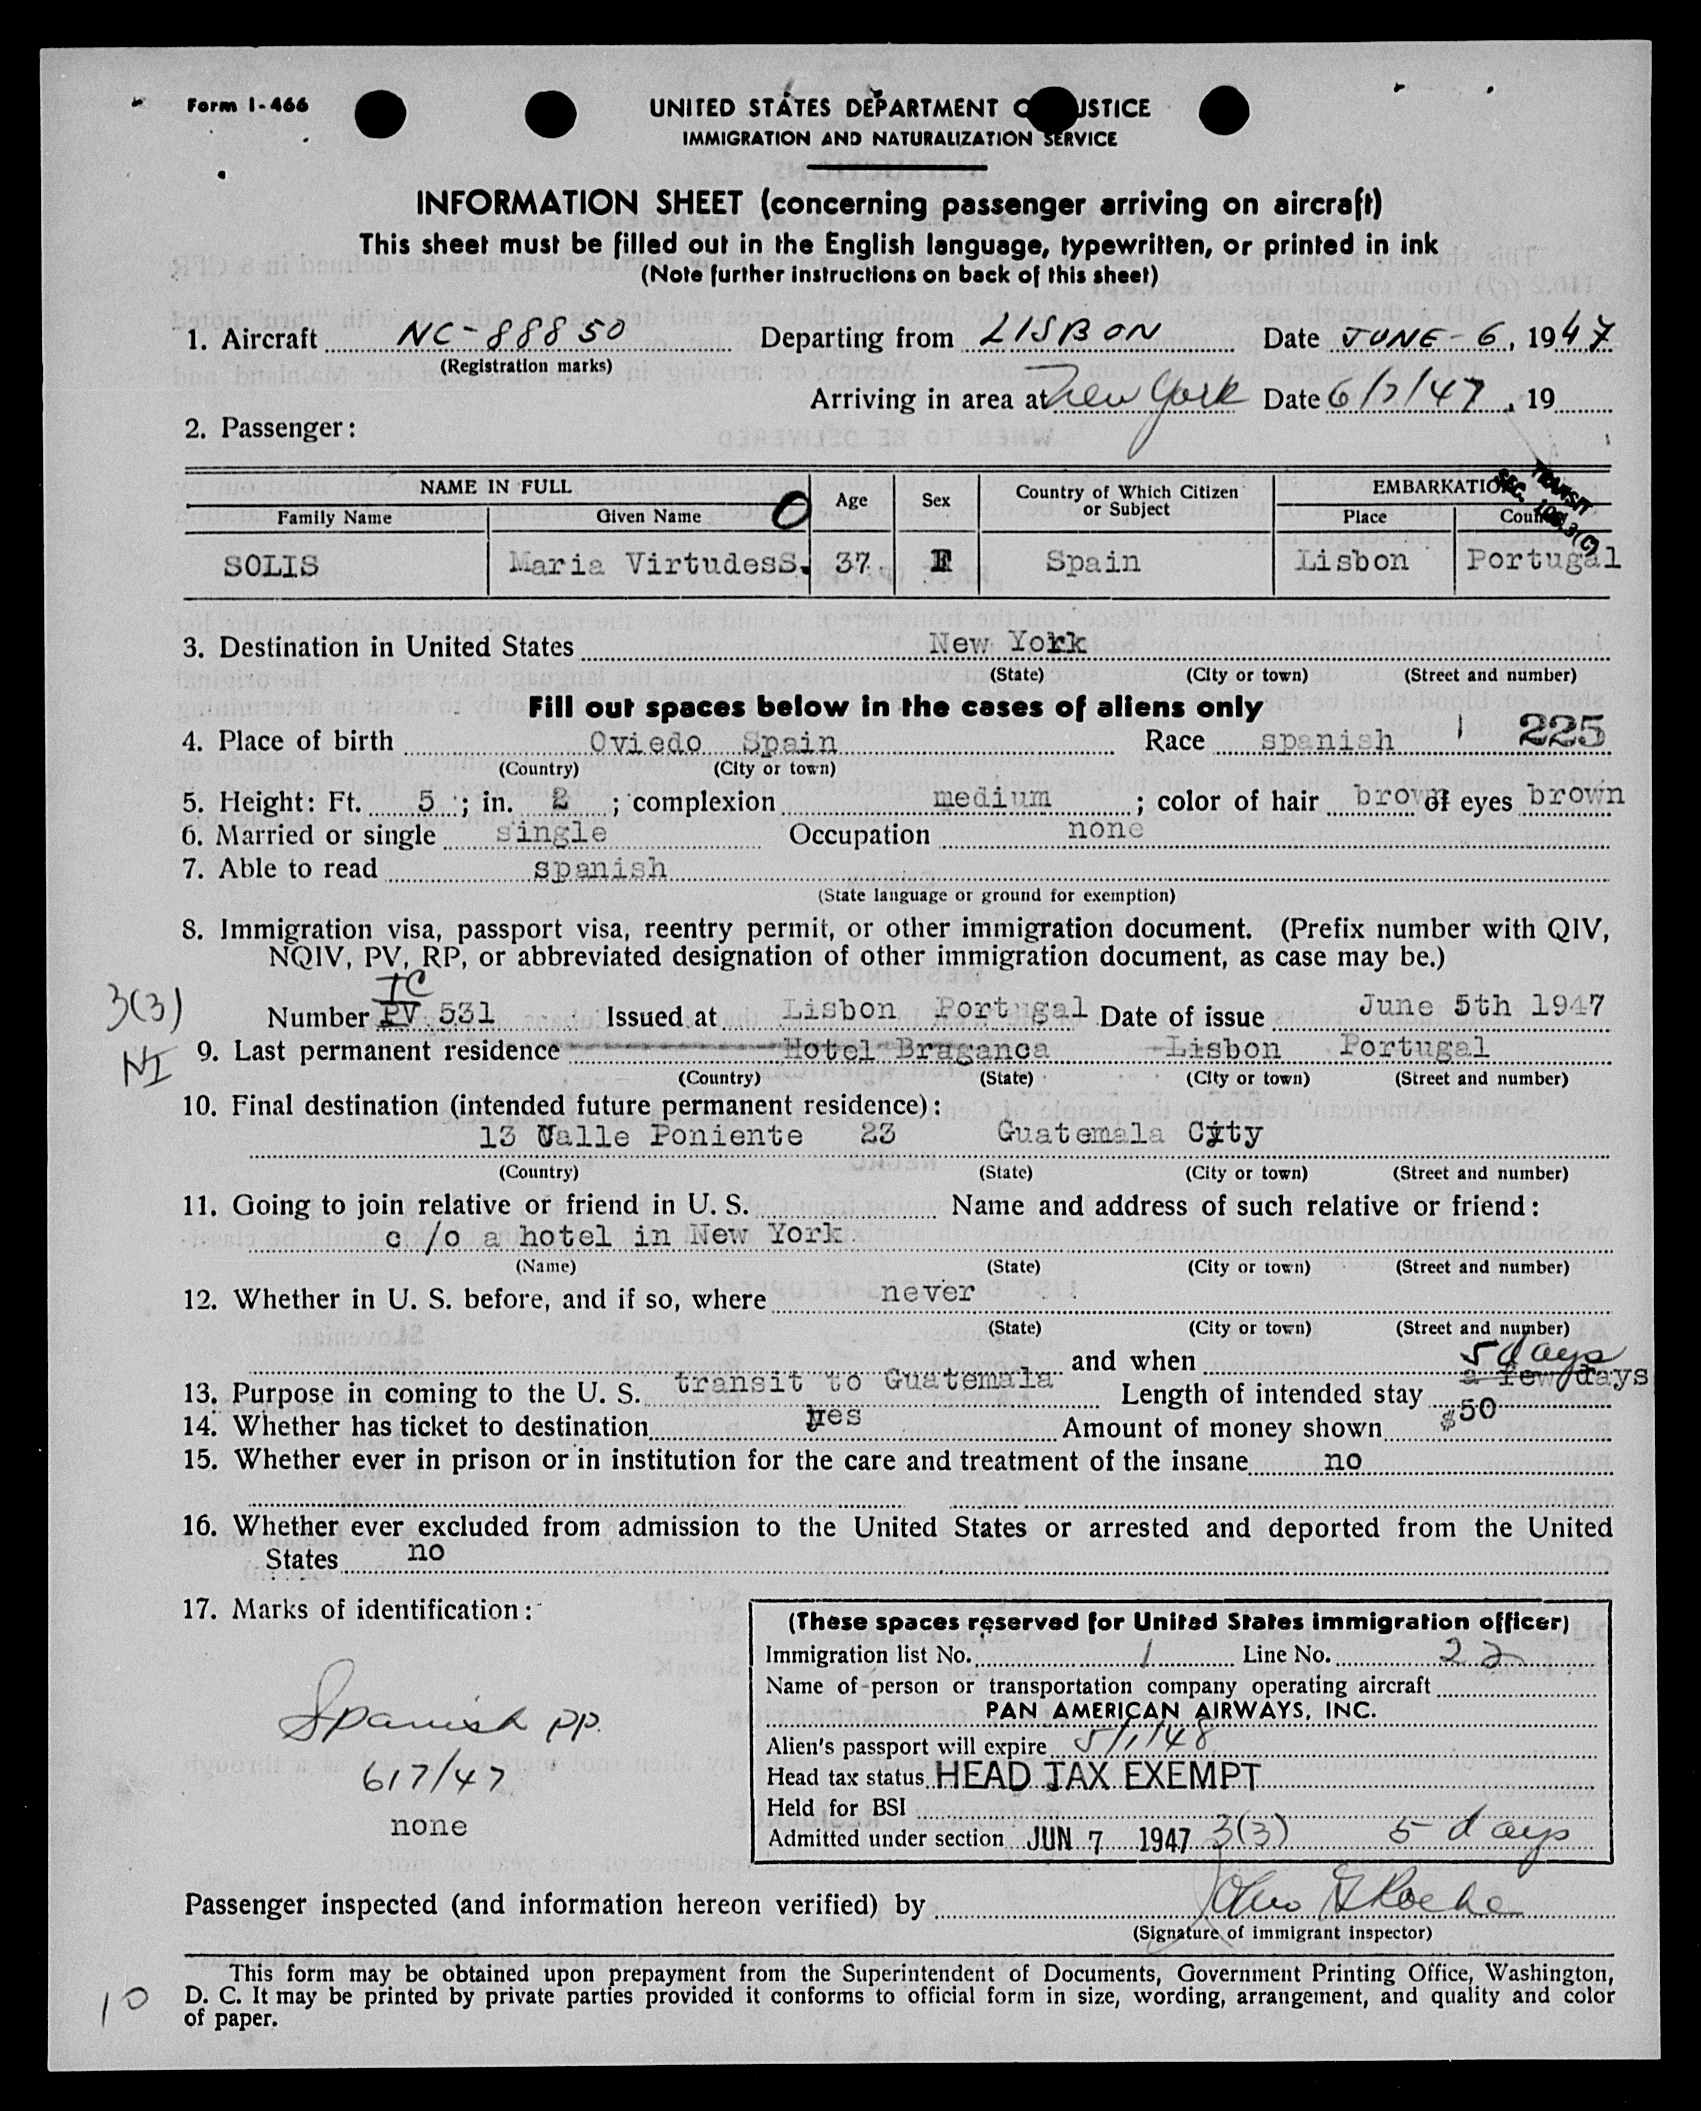 Form I-466
UNITED STATES DEPARTMENT OF JUSTICE
IMMIGRATION AND NATURALIZATION SERVICE
INFORMATION SHEET (concerning passenger arriving on aircraft)
This sheet must be filled out in the English language, typewritten, or printed in ink
(Note further instructions on back of this sheet)
1. Aircraft NC-88850 Departing from LISBON Date JUNE-6, 1947
(Registration marks)
Arriving in area at New York Date 6/7/47, 19
2. Passenger:
NAME IN FULL Age Sex Country of Which Citizen or Subject EMBARKATION
Family Name Given Name O Place Country
TRANSIT SEC.
SOLIS Maria VirtudesS. 37. F Spain Lisbon Portugal
3. Destination in United States New York
(State) (City or town) (Street and number)
Fill out spaces below in the cases of aliens only
4. Place of birth Oviedo Spain Race spanish 225
(Country) (City or town)
5. Height: Ft. 5; in. 2; complexion medium; color of hair brown of eyes brown
6. Married or single single Occupation none
7. Able to read spanish
(State language or ground for exemption)
8. Immigration visa, passport visa, reentry permit, or other immigration document. (Prefix number with QIV,
NQIV, PV, RP, or abbreviated designation of other immigration document, as case may be.)
TC
3(3) Number PV 531 Issued at Lisbon Portugal Date of issue June 5th 1947
NI 9. Last permanent residence Hotel Braganca -Lisbon Portugal
(Country) (State) (City or town) (Street and number)
10. Final destination (intended future permanent residence):
13 Calle Poniente 23 Guatemala City
(Country) (State) (City or town) (Street and number)
11. Going to join relative or friend in U. S. Name and address of such relative or friend:
c /o a hotel in New York
(Name) (State) (City or town) (Street and number)
12. Whether in U. S. before, and if so, where never
(State) (City or town) (Street and number)
and when 5 days
13. Purpose in coming to the U. S. transit to Guatemala Length of intended stay a few days
14. Whether has ticket to destination yes Amount of money shown $50
15. Whether ever in prison or in institution for the care and treatment of the insane no
16. Whether ever excluded from admission to the United States or arrested and deported from the United
States no
17. Marks of identification:
Spanish pp.
617/47
none
(These spaces reserved for United States immigration officer)
Immigration list No. 1 Line No. 22
Name of person or transportation company operating aircraft
PAN AMERICAN AIRWAYS, INC.
Alien's passport will expire 5/1/48
Head tax status HEAD TAX EXEMPT
Held for BSI
Admitted under section JUN 7 1947 3(3) 5 days
Passenger inspected (and information hereon verified) by
(Signature of immigrant inspector)
This form may be obtained upon prepayment from the Superintendent of Documents, Government Printing Office, Washington,
D. C. It may be printed by private parties provided it conforms to official form in size, wording, arrangement, and quality and color
of paper.
10